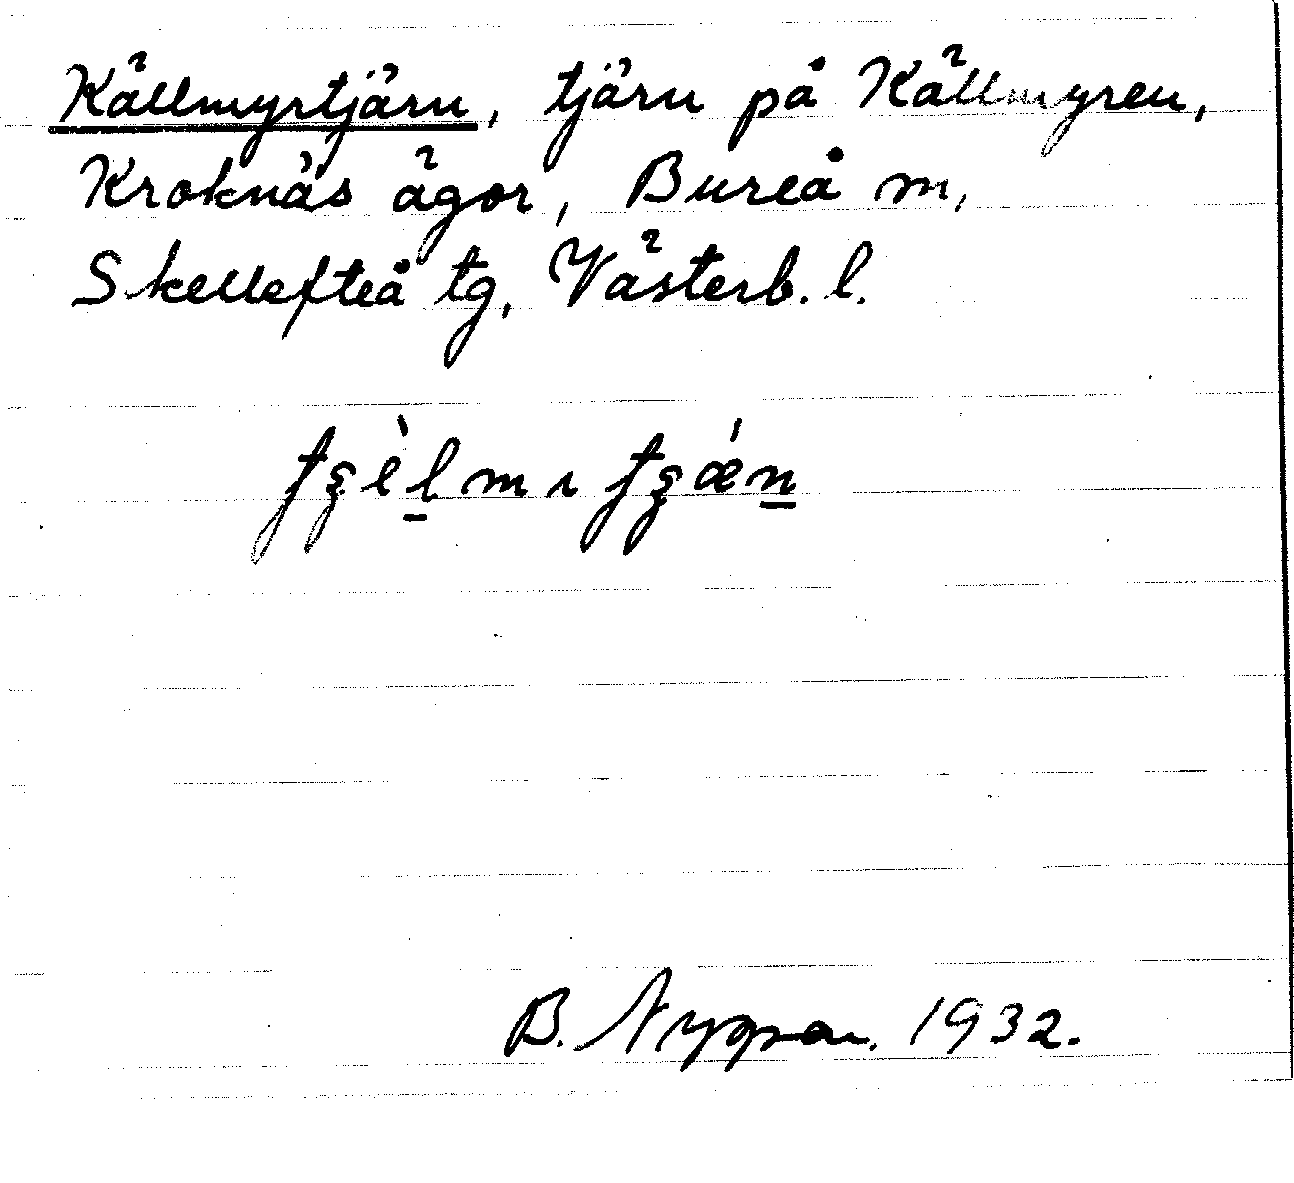 Källmyrtjärn, tjärn på Källmyren,
Kroknäs ägor, Bureå m,
Skellefteå tg, Västerb. l.
B. 1932.